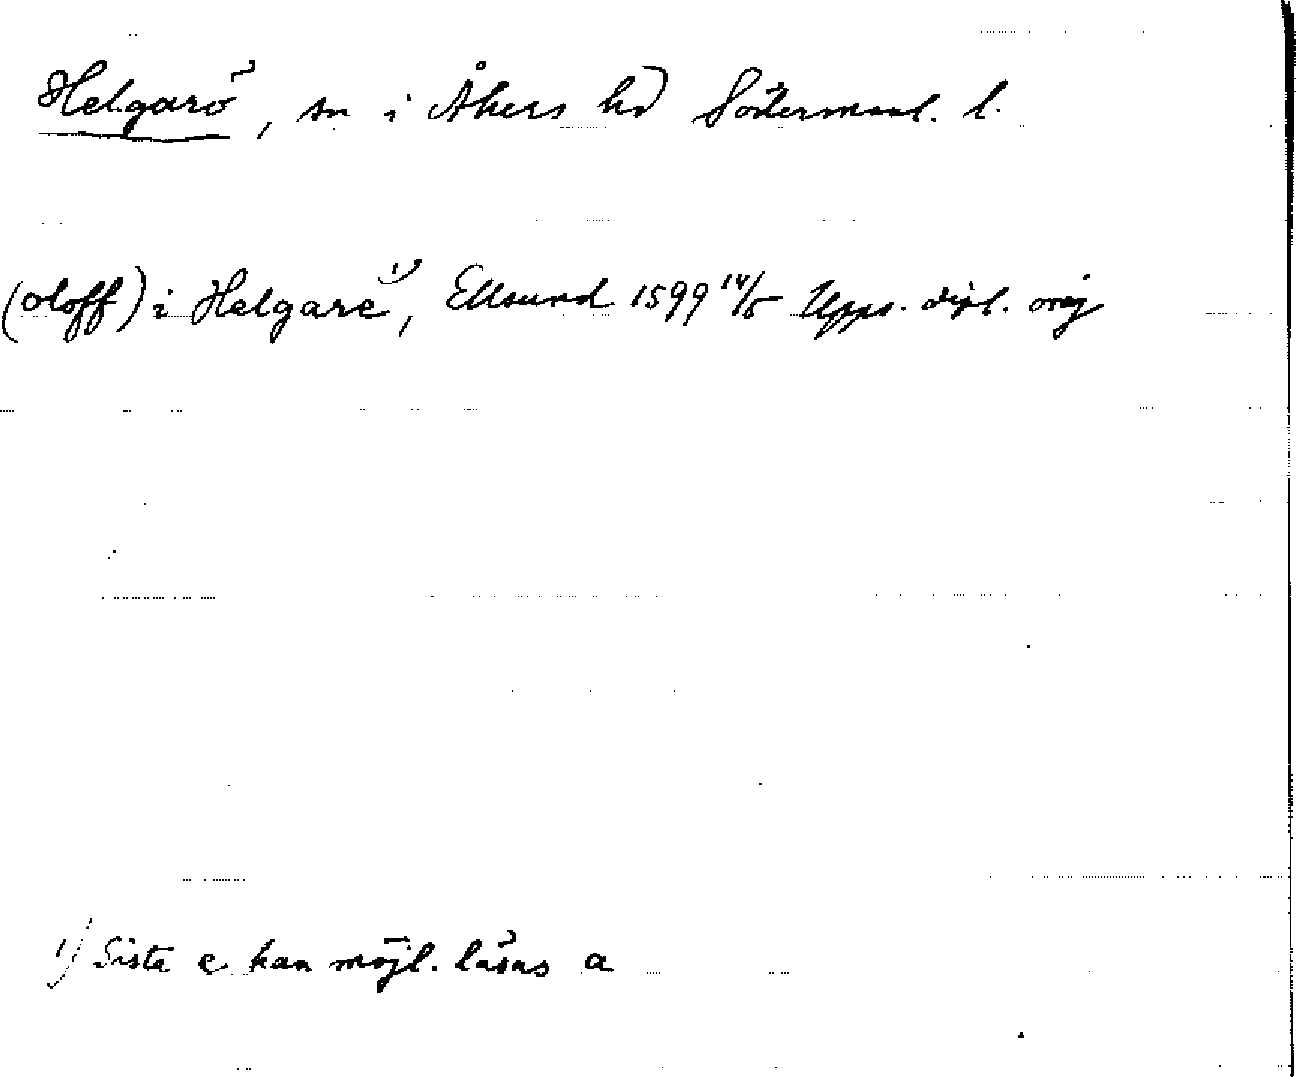 Helgarö, sn i Åkers hd Södermanl. l.
(Oloff) i Helgare¹⁾, Ellsund 1599 14/5 Upps. dipl. orig
1) Sista e kan möjl. läsas a